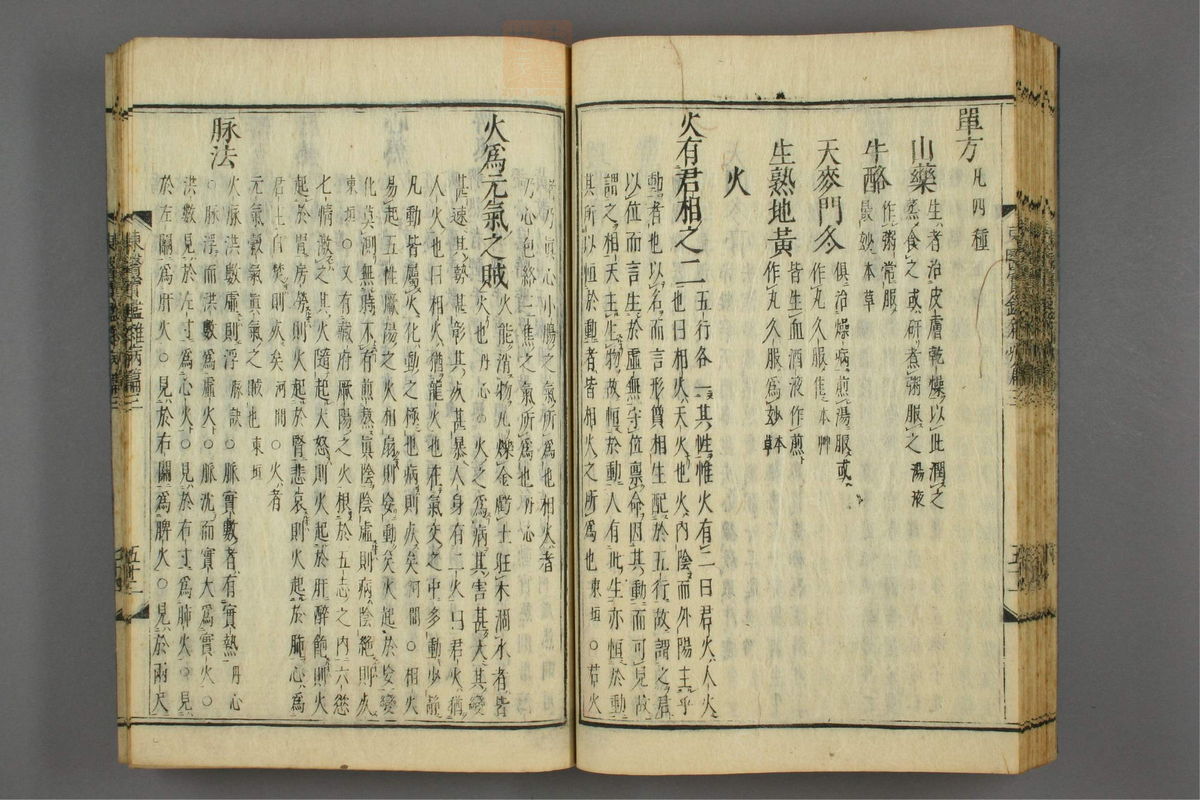 單方 凡四種
山藥 生者治皮膚乾燥以此潤之
蒸食之或研煮粥服之 湯液
牛酪 作粥常服
最妙 本草
天麥門冬 俱治燥病煎湯服或
作丸久服佳 本艸
生熟地黃 皆生血酒液作煎
作丸久服爲妙 本草
火
火有君相之二 五行各一其性惟火有二曰君火人火
也曰相火天火也火內陰而外陽主乎
動者也以名而言形質相生配於五行故謂之君
以位而言生於虛無守位稟命因其動而可見故
謂之相天主生物故恒於動人有此生亦恒於動
其所以恒於動者皆相火之所爲也 東垣 ○君火
者乃眞心小腸之氣所爲也相火者
乃心包絡三焦之氣所爲也 丹心
火爲元氣之賊 火能消物凡爍金虧土旺木涸水者皆
火也 丹心 ○火之爲病其害甚大其變
甚速其勢甚彰其死甚暴人身有二火曰君火猶
人火也曰相火猶龍火也在氣交之中多動少靜
凡動皆屬火化動之極也病則死矣 河間 ○相火
易起五性厥陽之火相扇則妄動矣火起於妄變
化莫測無時不有煎熬眞陰陰虛則病陰絶則死
東垣 ○又有藏府厥陽之火根於五志之內六慾
七情激之其火隨起大怒則火起於肝醉飽則火
起於胃房勞則火起於腎悲哀則火起於肺心爲
君主自焚則死矣 河間 ○火者
元氣穀氣眞氣之賊也 東垣
脉法 火脉洪數虛則浮 脉訣 ○脉實數者有實熱 丹心
○脉浮而洪數爲虛火○脉沈而實大爲實火○
洪數見於左寸爲心火○見於右寸爲肺火○見
於左關爲肝火○見於右關爲脾火○見於兩尺
東醫寶鑑雜病篇三